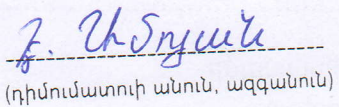 Հ. Սիմոյան
(դիմումատուի անուն, ազգանուն)